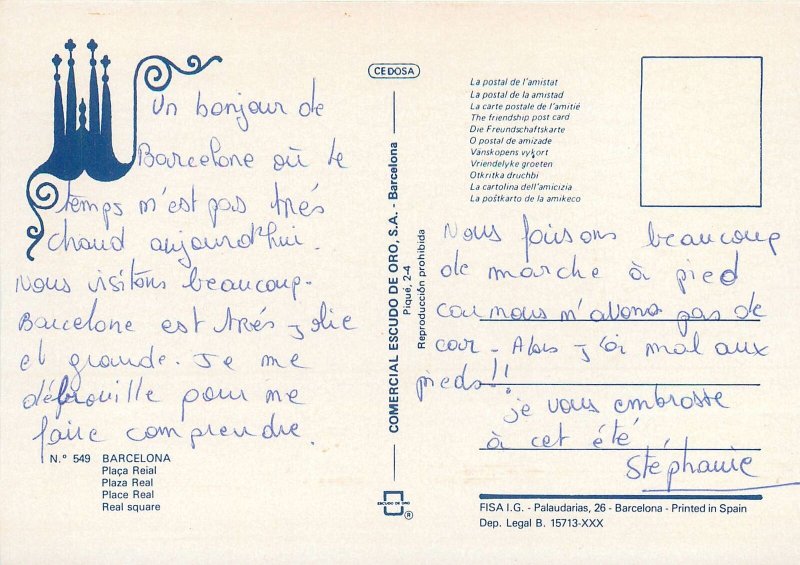 Un bonjour de
Barcelone où le
temps n'est pas très
chaud aujourd'hui.
Nous visitons beaucoup.
Barcelone est très jolie
et grande. Je me
débrouille pour me
faire comprendre.
N.º 549 BARCELONA
Plaça Reial
Plaza Real
Place Real
Real square
CEDOSA
COMERCIAL ESCUDO DE ORO, S.A. - Barcelona
Piqué, 2-4
Reproducción prohibida
ESCUDO DE ORO
®
La postal de l'amistat
La postal de la amistad
La carte postale de l'amitié
The friendship post card
Die Freundschaftskarte
O postal de amizade
Vänskapens vykort
Vriendelyke groeten
Otkritka druchbi
La cartolina dell'amicizia
La poŝtkarto de la amikeco
Nous faisons beaucoup
de marche à pied
car nous n'avons pas de
car - Alors j'ai mal aux
pieds!!
je vous embrasse
à cet été
Stéphanie
FISA I.G. - Palaudarias, 26 - Barcelona - Printed in Spain
Dep. Legal B. 15713-XXX